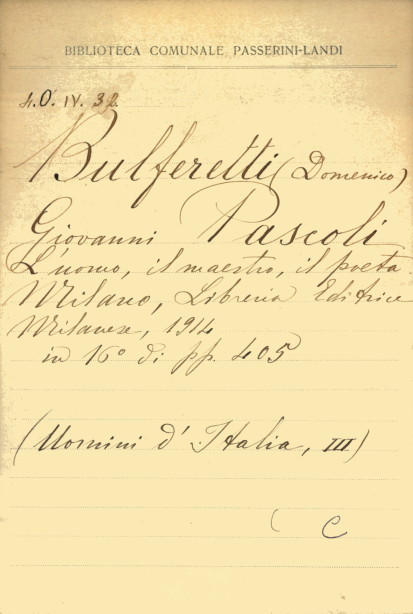 BIBLIOTECA COMUNALE PASSERINI-LANDI
4.O. IV. 32
Bulferetti (Domenico)
Giovanni Pascoli
L'uomo, il maestro, il poeta.
Milano, Libreria Editrice
Milanese, 1914
in 16° di pp. 405
(Uomini d'Italia, III)
( C